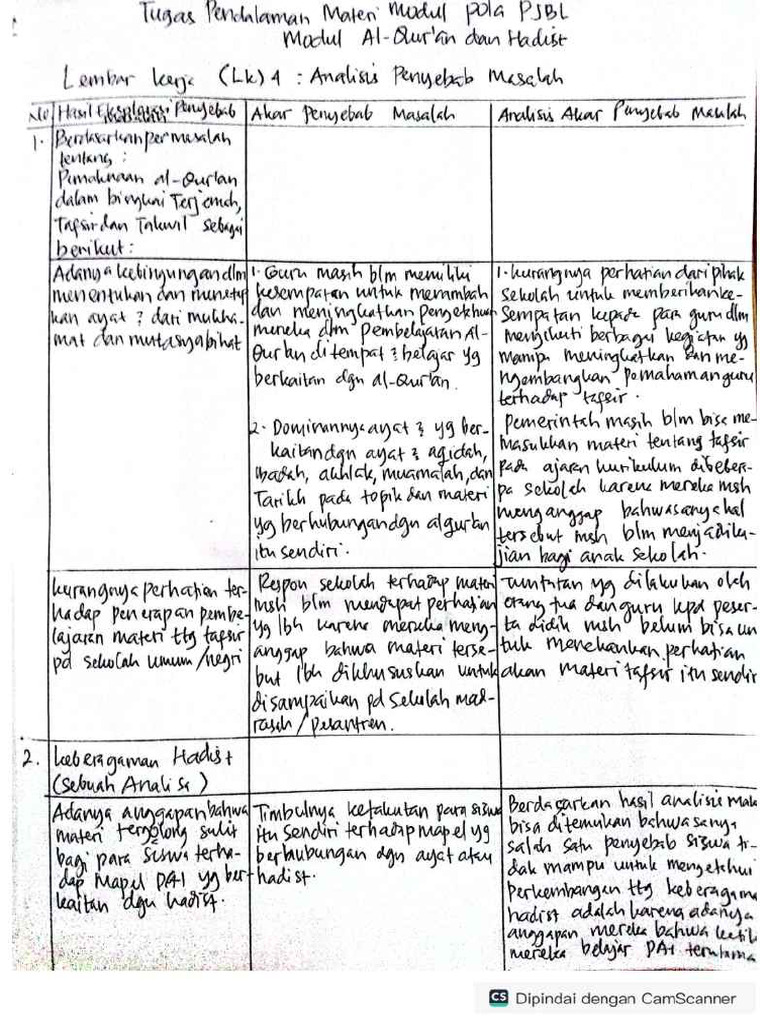 Tugas Pendalaman Materi Modul pola PJBL
Modul Al-Qur'an dan Hadist
Lembar kerja (Lk) 4 : Analisis Penyebab Masalah
No Hasil Eksplorasi Penyebab
Akar Penyebab Masalah
Analisis Akar Penyebab Masalah
1. Berdasarkan permasalah
tentang :
Pemaknaan al-Qur'an
dalam bingkai Terjemah,
Tafsir dan Takwil sebagai
berikut :
Adanya kebingungan dlm
menentukan dan menetap
kan ayat 2 dari muhka-
mat dan mutasyabihat
1. Guru masih blm memiliki
kesempatan untuk menambah
dan meningkatkan pengetahuan
mereka dlm pembelajaran Al-
Qur'an di tempat 2 belajar yg
berkaitan dgn al-Qur'an.
2. Dominannya ayat 2 yg ber-
kaitan dgn ayat 2 aqidah,
ibadah, akhlak, muamalah, dan
Tarikh pada topik dan materi
yg berhubungan dgn alqur'an
itu sendiri.
1. kurangnya perhatian dari pihak
sekolah untuk memberikan ke-
sempatan kepada para guru dlm
mengikuti berbagai kegiatan yg
mampu meningkatkan dan me-
ngembangkan pemahaman guru
terhadap tafsir.
Pemerintah masih blm bisa me-
masukkan materi tentang tafsir
pada ajaran kurikulum dibeber-
pa sekolah karena mereka msh
menganggap bahwasanya hal
tersebut msh blm menjadi ka-
jian bagi anak sekolah.
kurangnya perhatian ter-
hadap penerapan pembe-
lajaran materi ttg tafsir
pd sekolah umum/negri
Respon sekolah terhadap materi
msh blm mendapat perhatian
yg lbh karena mereka meng-
anggap bahwa materi terse-
but lbh dikhususkan untuk
disampaikan pd Sekolah mad-
rasah / pesantren.
Tuntutan yg dilakukan oleh
orang tua dan guru kpd peser-
ta didik msh belum bisa un
tuk menekankan perhatian
akan materi tafsir itu sendir
2. keberagaman Hadist
(Sebuah Analisa)
Adanya anggapan bahwa
materi tergolong sulit
bagi para siswa terha-
dap Mapel PAI yg ber-
kaitan dgn hadist.
Timbulnya ketakutan para siswa
itu sendiri terhadap mapel yg
berhubungan dgn ayat atau
hadist.
Berdasarkan hasil analisis maka
bisa ditemukan bahwasanya
salah satu penyebab siswa ti-
dak mampu untuk mengetahui
perkembangan ttg keberagama
hadist adalah karena adanya
anggapan mereka bahwa ketik
mereka belajar PAI terutama
CS Dipindai dengan CamScanner